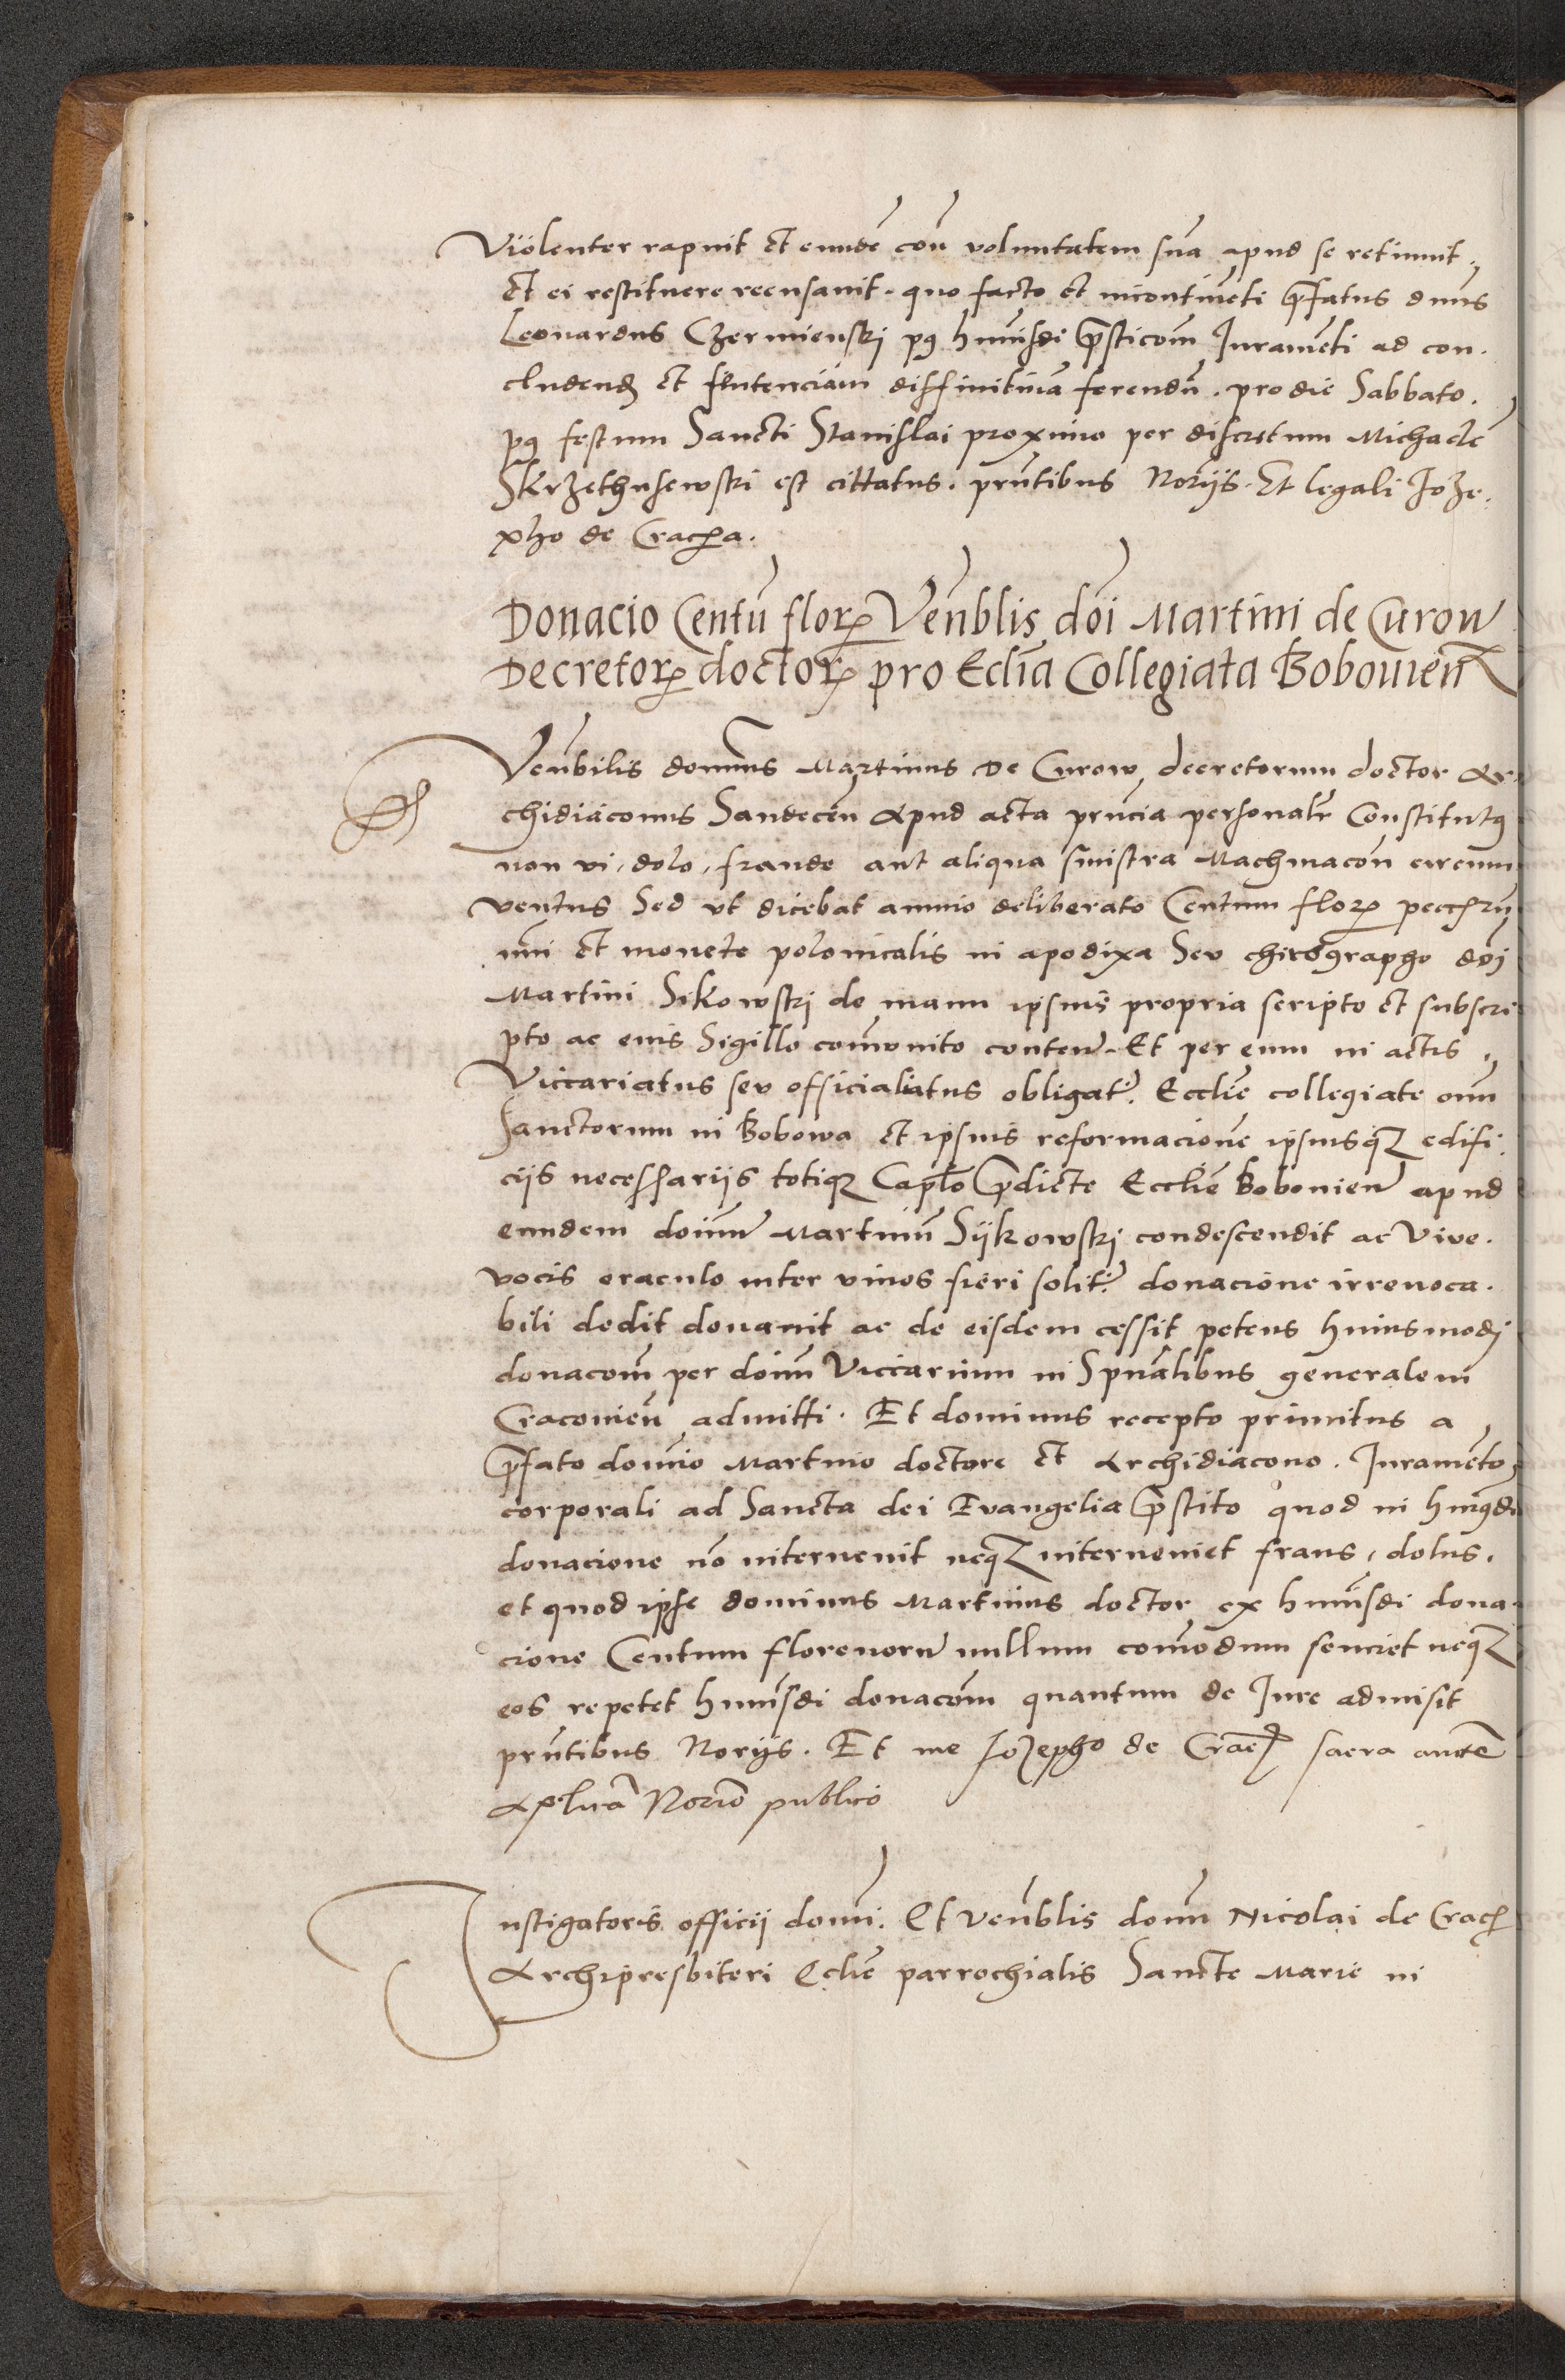 Violenter rapuit et eundē coñ voluntatem suā apud se retinuit,
et ei restituere recusavit. quo facto et incontinēti p̄fatus dñus
Leonardus Czermienskj pꝯ huiusdi p̄sticoñ Juramēti ad con-
cludendꝝ et sentenciam diffinitivā ferendū. pro die Sabbato.
pꝯ festum Sancti Stanislai proximo per discretum Michaelē
Skrzethusewski est cittatus. pñtibus Noriis. Et legali Joze-
pho de Cracꝫa.
Donacio Centū florꝝ Veñblis doi Martini de Curow
Decretorꝝ doctorꝝ pro Ecclia Collegiata Bobowieñ
Veñbilis dominus Martinus De Curow decretorum doctor Ar-
chidiaconus Sandeceñ Apud acta pñcia personalr Constitutꝯ
non vi, dolo, fraude aut aliqua sinistra Machinacoñ circum
ventus Sed ut dicebat animo deliberato Centum florꝝ
et monete polonicalis in apodixa Seu chirographo doj
Martini Sikowskj de manu ipsius propria scripto et subscri-
pto ac eius Sigillo comunito conteñ. Et per eum in actis,
Viccariatus seu officialiatus obligatꝝ. Ecclie collegiate omñ
Sanctorum in Bobowa et ipsius reformacione ipsiusqꝫ edifi-
ciis necessariis totiqꝫ Caplo p̄dicte Ecclie Bobowieñ apud
eundem doiñ Martinū Sijkowskj condescendit ac Vive.
vocis oraculo inter vivos fieri solitꝝ donacione irrevoca-
bili dedit donavit ac de eisdem cessit petens huiusmodj
donacoñ per doiñ Viccarium in Spñalibus generalem
Cracovieñ admitti. Et dominus recepto primitus a
p̄fato domino Martino doctore et Archidiacono. Juramento,
corporali ad Sancta dei Evangelia p̄stito quod in huiusdi
donacione nō intervenit neqꝫ interveniet fraus, dolus.
et quod ipse dominus Martinus doctor ex huiusdi dona-
cione Centum florenorū nullum comodum senciet neqꝫ
eos repetet huiusdi donacoñ quantum de Jure admisit
pñtibus Noriis. Et me Jozepho de Cracꝫ sacra aucte
Aplica Norio publico
Instigatoris officii domi. Et veñblis domi Nicolai de Cracꝫ
Archipresbiteri Eclie parrochialis Sancte Marie in